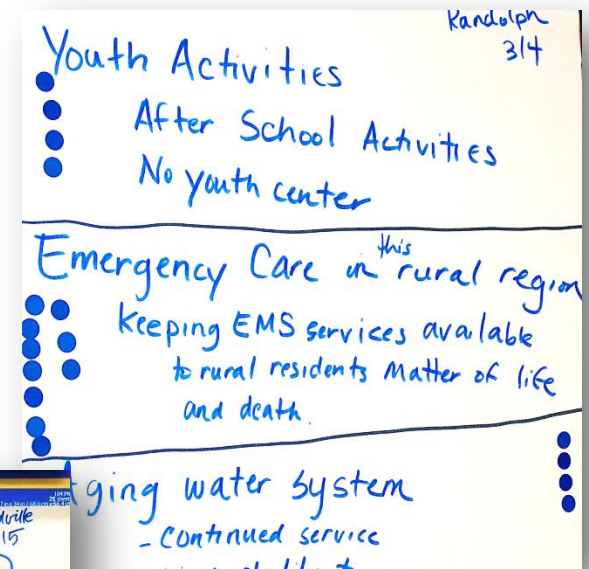 Randolph
3/4
Youth Activities
After School Activities
No youth center
Emergency Care in this rural region
Keeping EMS services available
to rural residents Matter of life
and death.
ging water system
- Continued service
15